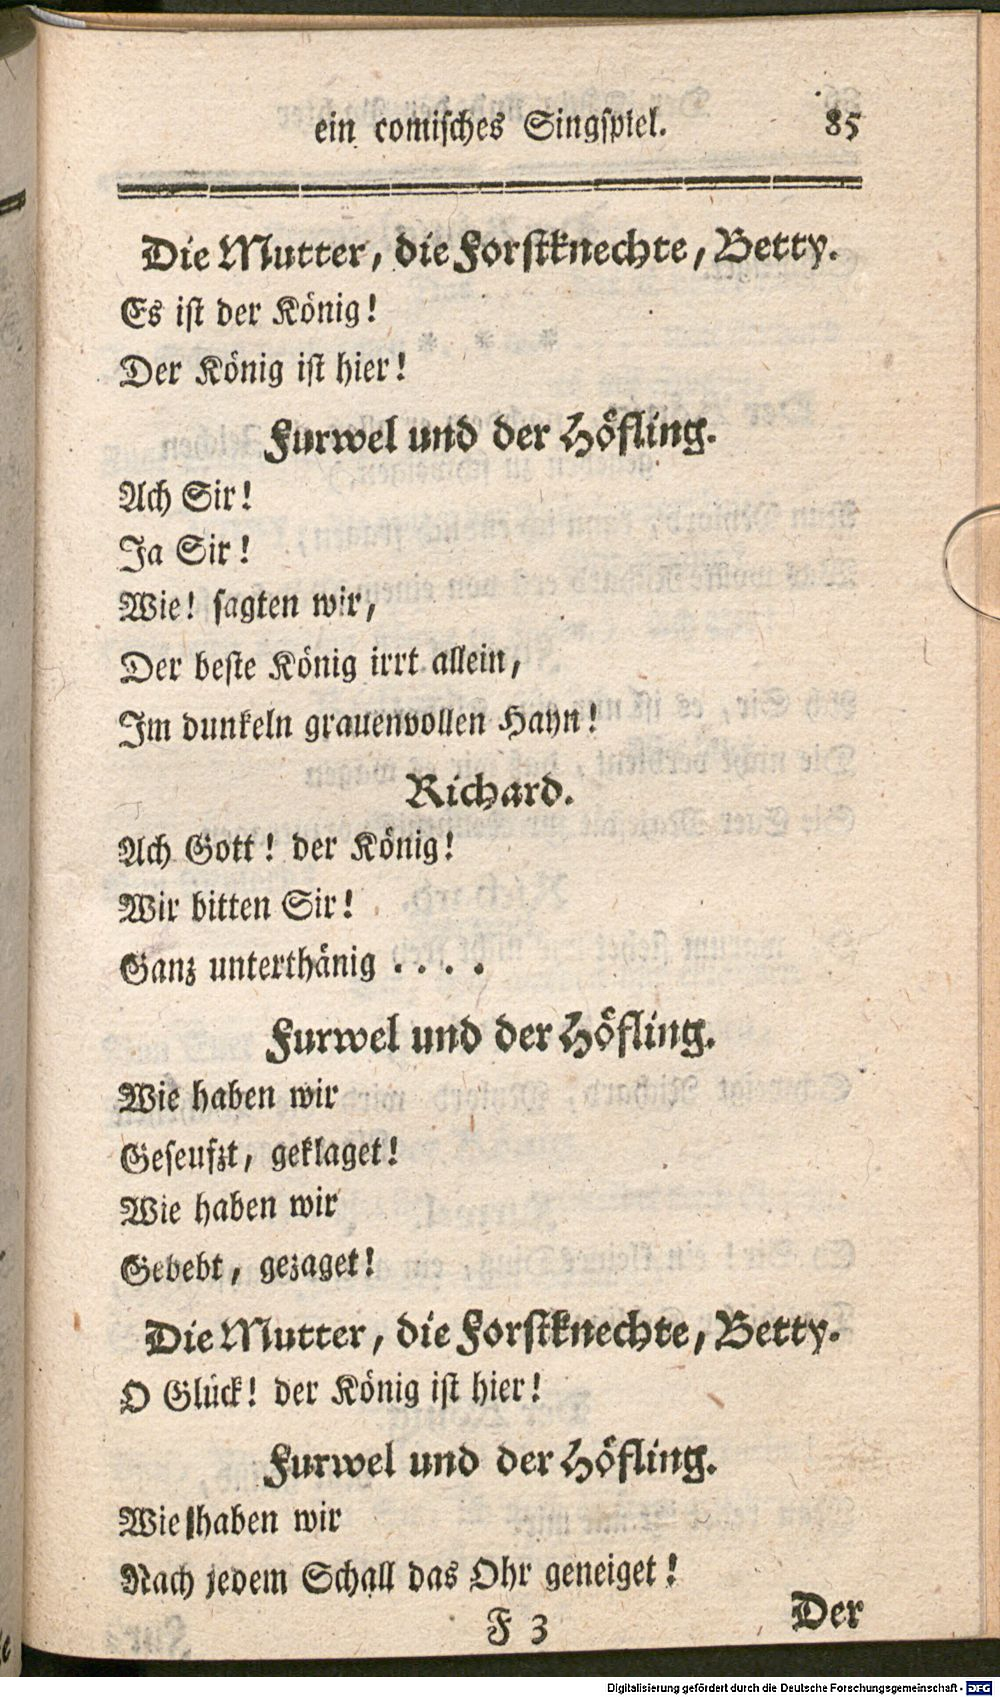 ein comisches Singspiel. 85
Die Mutter, die Forstknechte, Betty.
Es ist der König!
Der König ist hier!
Furwel und der Höfling.
Ach Sir!
Ja Sir!
Wie! sagten wir,
Der beste König irrt allein,
Im dunkeln grauenvollen Hayn!
Richard.
Ach Gott! der König!
Wir bitten Sir!
Ganz unterthänig . . . .
Furwel und der Höfling.
Wie haben wir
Geseufzt, geklaget!
Wie haben wir
Gebebt, gezaget!
Die Mutter, die Forstknechte, Betty.
O Glück! der König ist hier!
Furwel und der Höfling.
Wie haben wir
Nach jedem Schall das Ohr geneiget!
F 3 Der
Digitalisierung gefördert durch die Deutsche Forschungsgemeinschaft - DFG